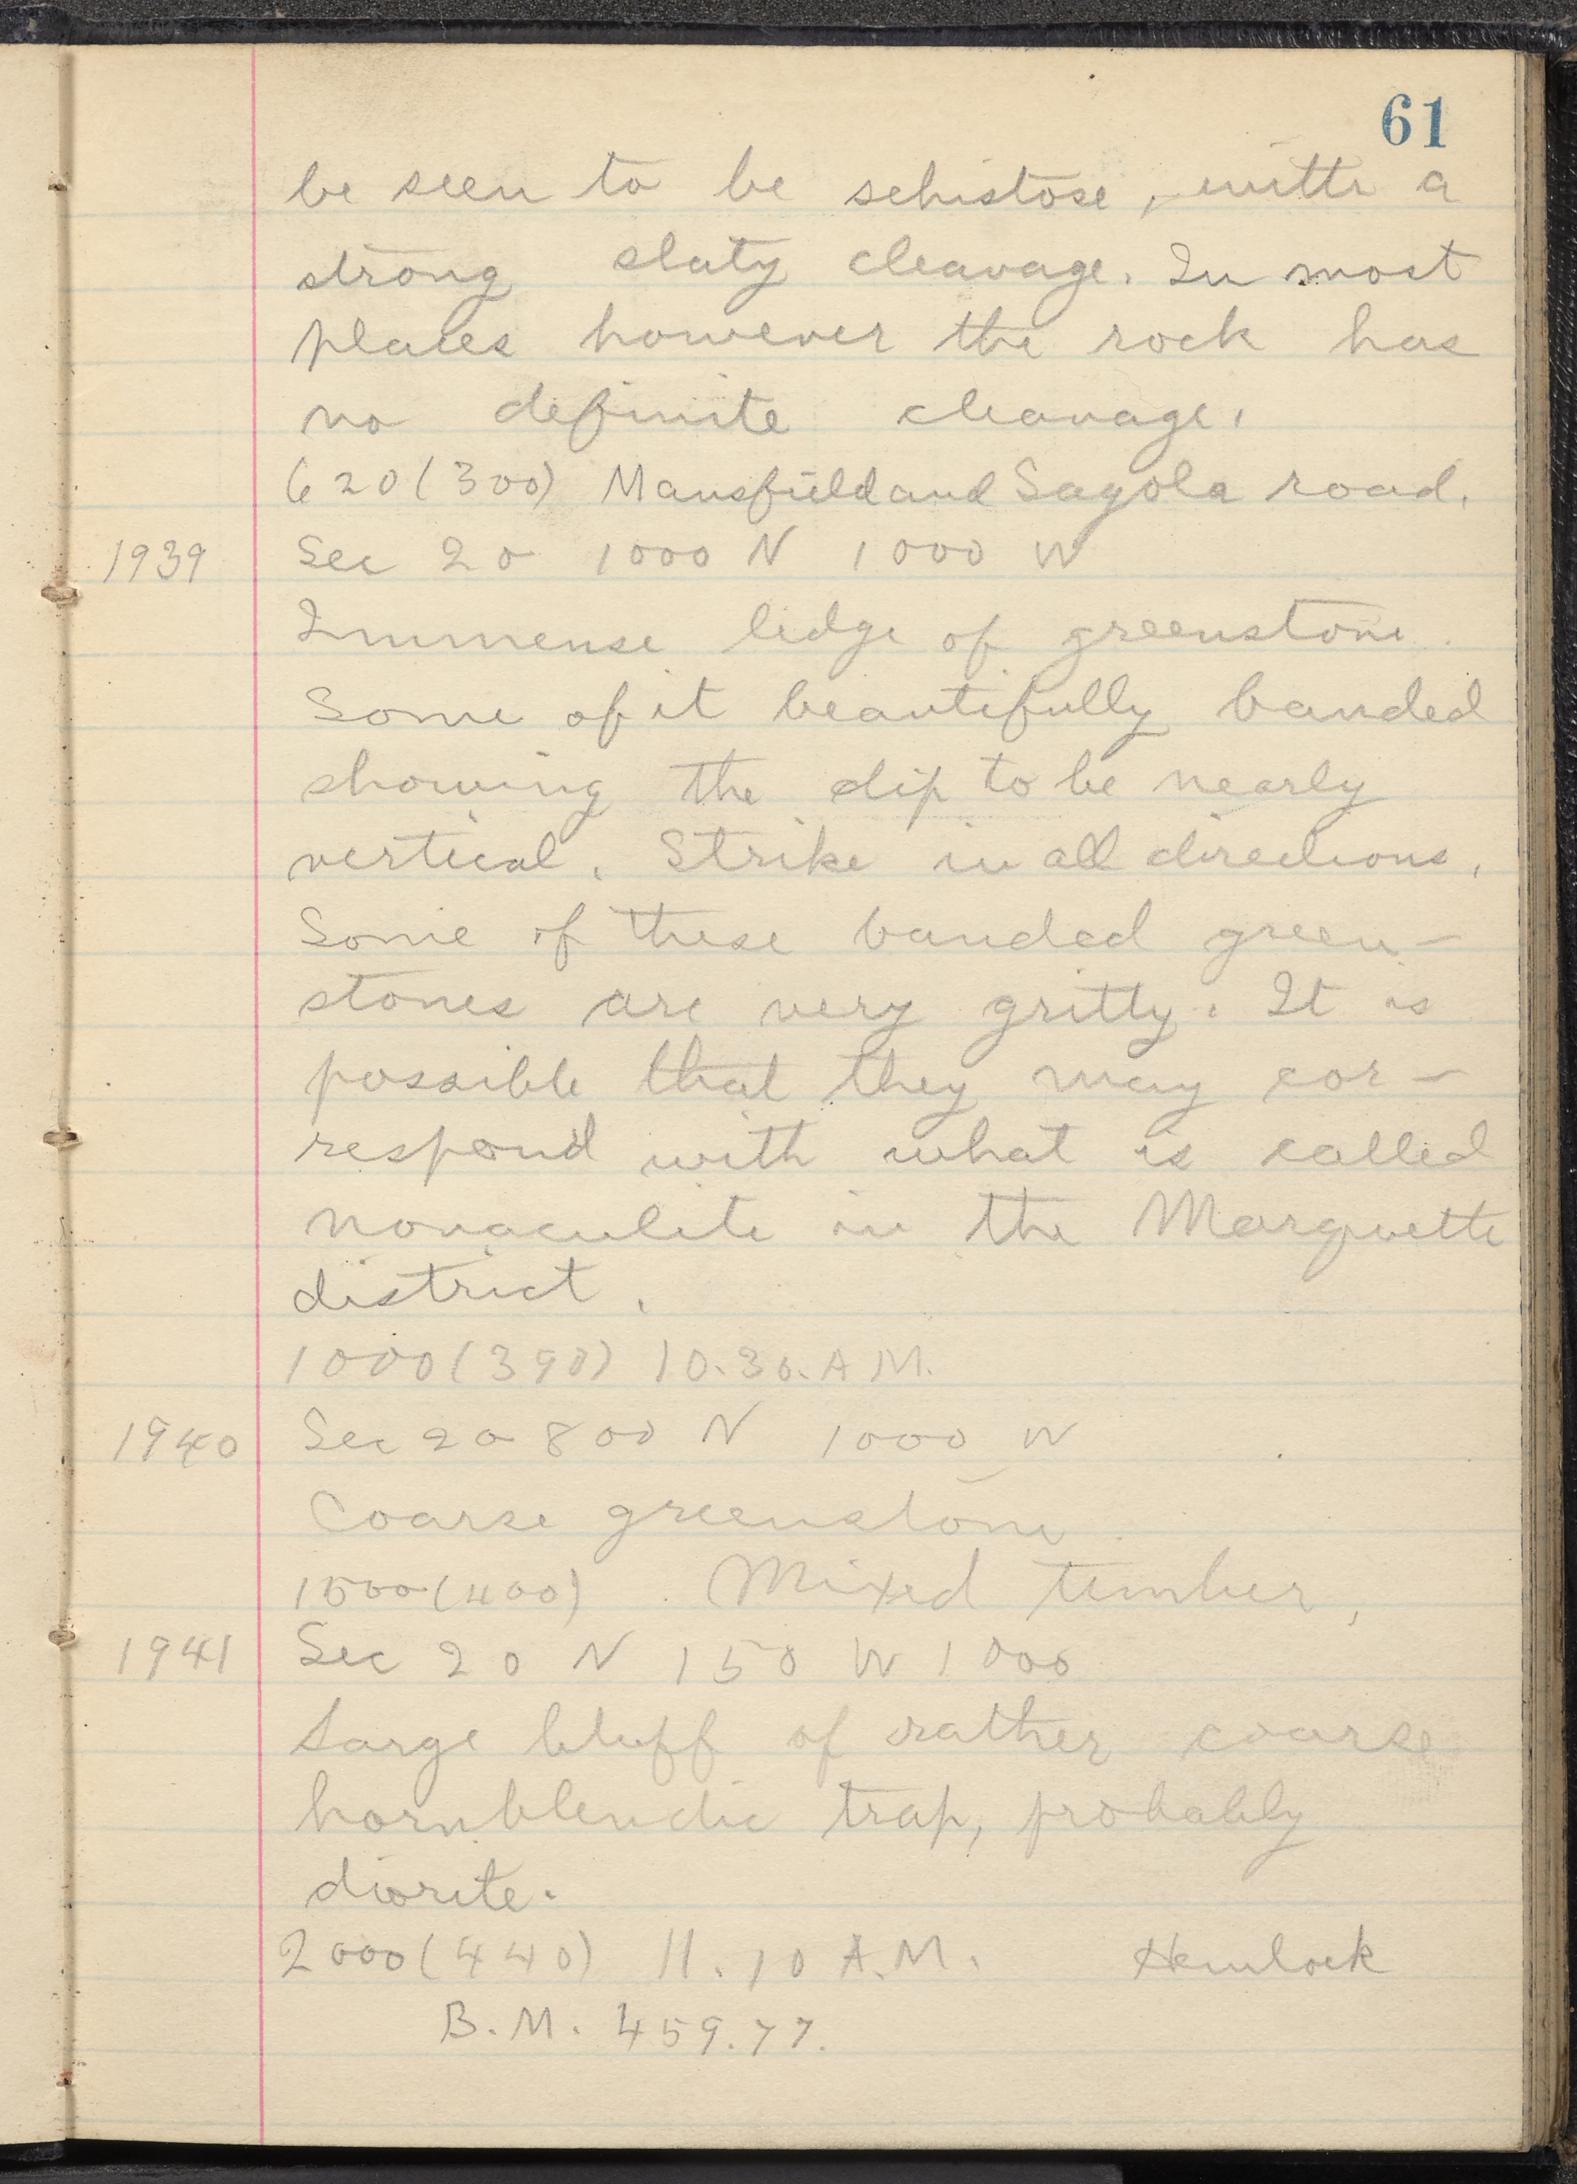 61
be seen to be schistose, with a
strong slaty cleavage. In most
places however the rock has
no definite cleavage.
620(300) Mansfield and Sagola road.
1939 Sec 20 1000 N 1000 W
Immense ledge of greenstone.
Some of it beautifully banded
showing the dip to be nearly
vertical. Strike in all directions.
Some of these banded green-
stones are very gritty. It is
possible that they may cor-
respond with what is called
novaculite in the Marquette
district.
1000(390) 10.30. A M.
1940 Sec 20 800 N 1000 W
Coarse greenstone.
1500(400) Mixed timber,
1941 Sec 20 N 150 W 1000
Large bluff of rather coarse
hornblendic trap, probably
diorite.
2000(440) 11.10 A.M. Hemlock
B.M. 459.77.